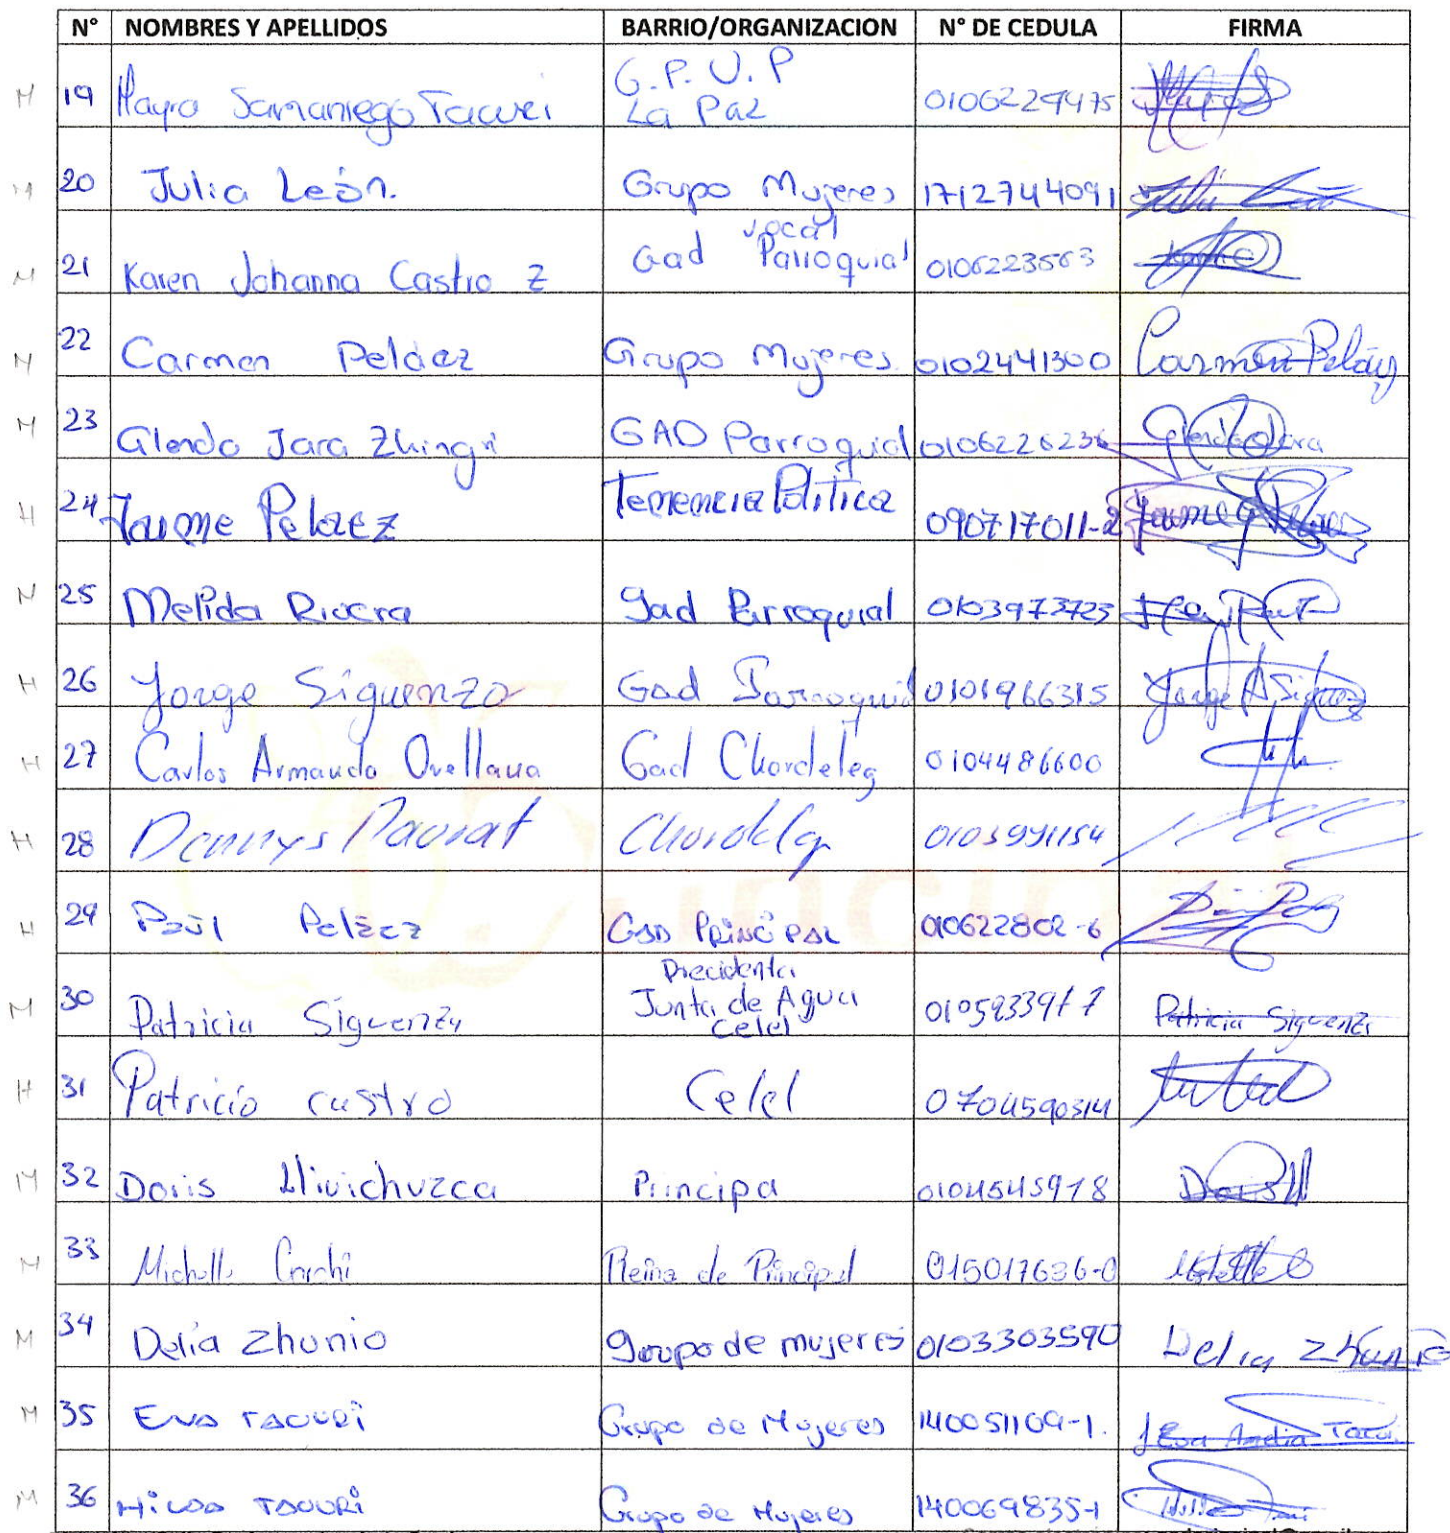 N° NOMBRES Y APELLIDOS BARRIO/ORGANIZACION N° DE CEDULA FIRMA
M 19 Mayra Samaniego Tacuri G.P.U.P La Paz 0106229475
M 20 Julia León. Grupo Mujeres 1712744091
M 21 Karen Johanna Castro Z vocal Gad Parroquial 0106223563
M 22 Carmen Peláez Grupo Mujeres 0102441300 Carmen Peláez
M 23 Glenda Jara Zhingri GAD Parroquial 0106226236 Glenda Jara
H 24 Jaime Pelaez Tenencia Politica 090717011-2 Jaime Pelaez
M 25 Melida Rivera Gad Parroquial 0103973723
H 26 Jorge Siguenza Gad Parroquial 0101966315 Jorge A Sigüenza
H 27 Carlos Armando Orellana Gad Chordeleg 0104486600
H 28 Dennys Chordeleg 0103991154
H 29 Paúl Peláez GAD PRINCIPAL 010622802-6
M 30 Patricia Siguenza Precidenta Junta de Agua Celel Patricia Siguenza
H 31 Patricio castro Celel 0704590314
M 32 Doris Llivichuzca Principal 0104545978 Doris Ll
M 33 Michelle Reina de Principal 015017636-0 Michelle
M 34 Delia Zhunio grupo de mujeres 0103303590 Delia Zhunio
M 35 Eva TACURI Grupo de Mujeres 140051109-1. Eva Tacuri
M 36 Hilda TACURI Grupo de Mujeres 140069835-1